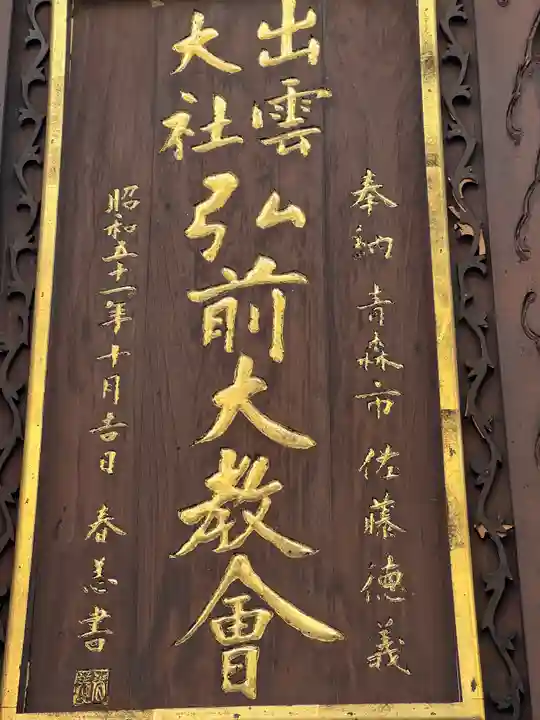 奉納 青森市 佐藤德義
出雲
大社
弘前大教會
昭和五十一年十月吉日 春善書